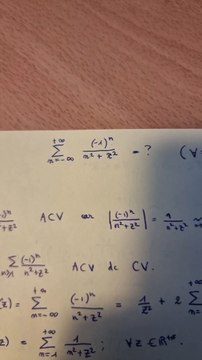 \sum_{n=-\infty}^{+\infty} \frac{(-1)^n}{n^2+z^2} = ? (∀
ACV car \left|\frac{(-1)^n}{n^2+z^2}\right| = \frac{1}{n^2+z^2} ~
\sum_{n≥1} \frac{(-1)^n}{n^2+z^2} ACV dc CV.
(z) = \sum_{n=-\infty}^{+\infty} \frac{(-1)^n}{n^2+z^2} = \frac{1}{z^2} + 2 \sum
z) = \sum_{n=1}^{+\infty} \frac{1}{n^2+z^2} ; ∀z ∈ ℝ